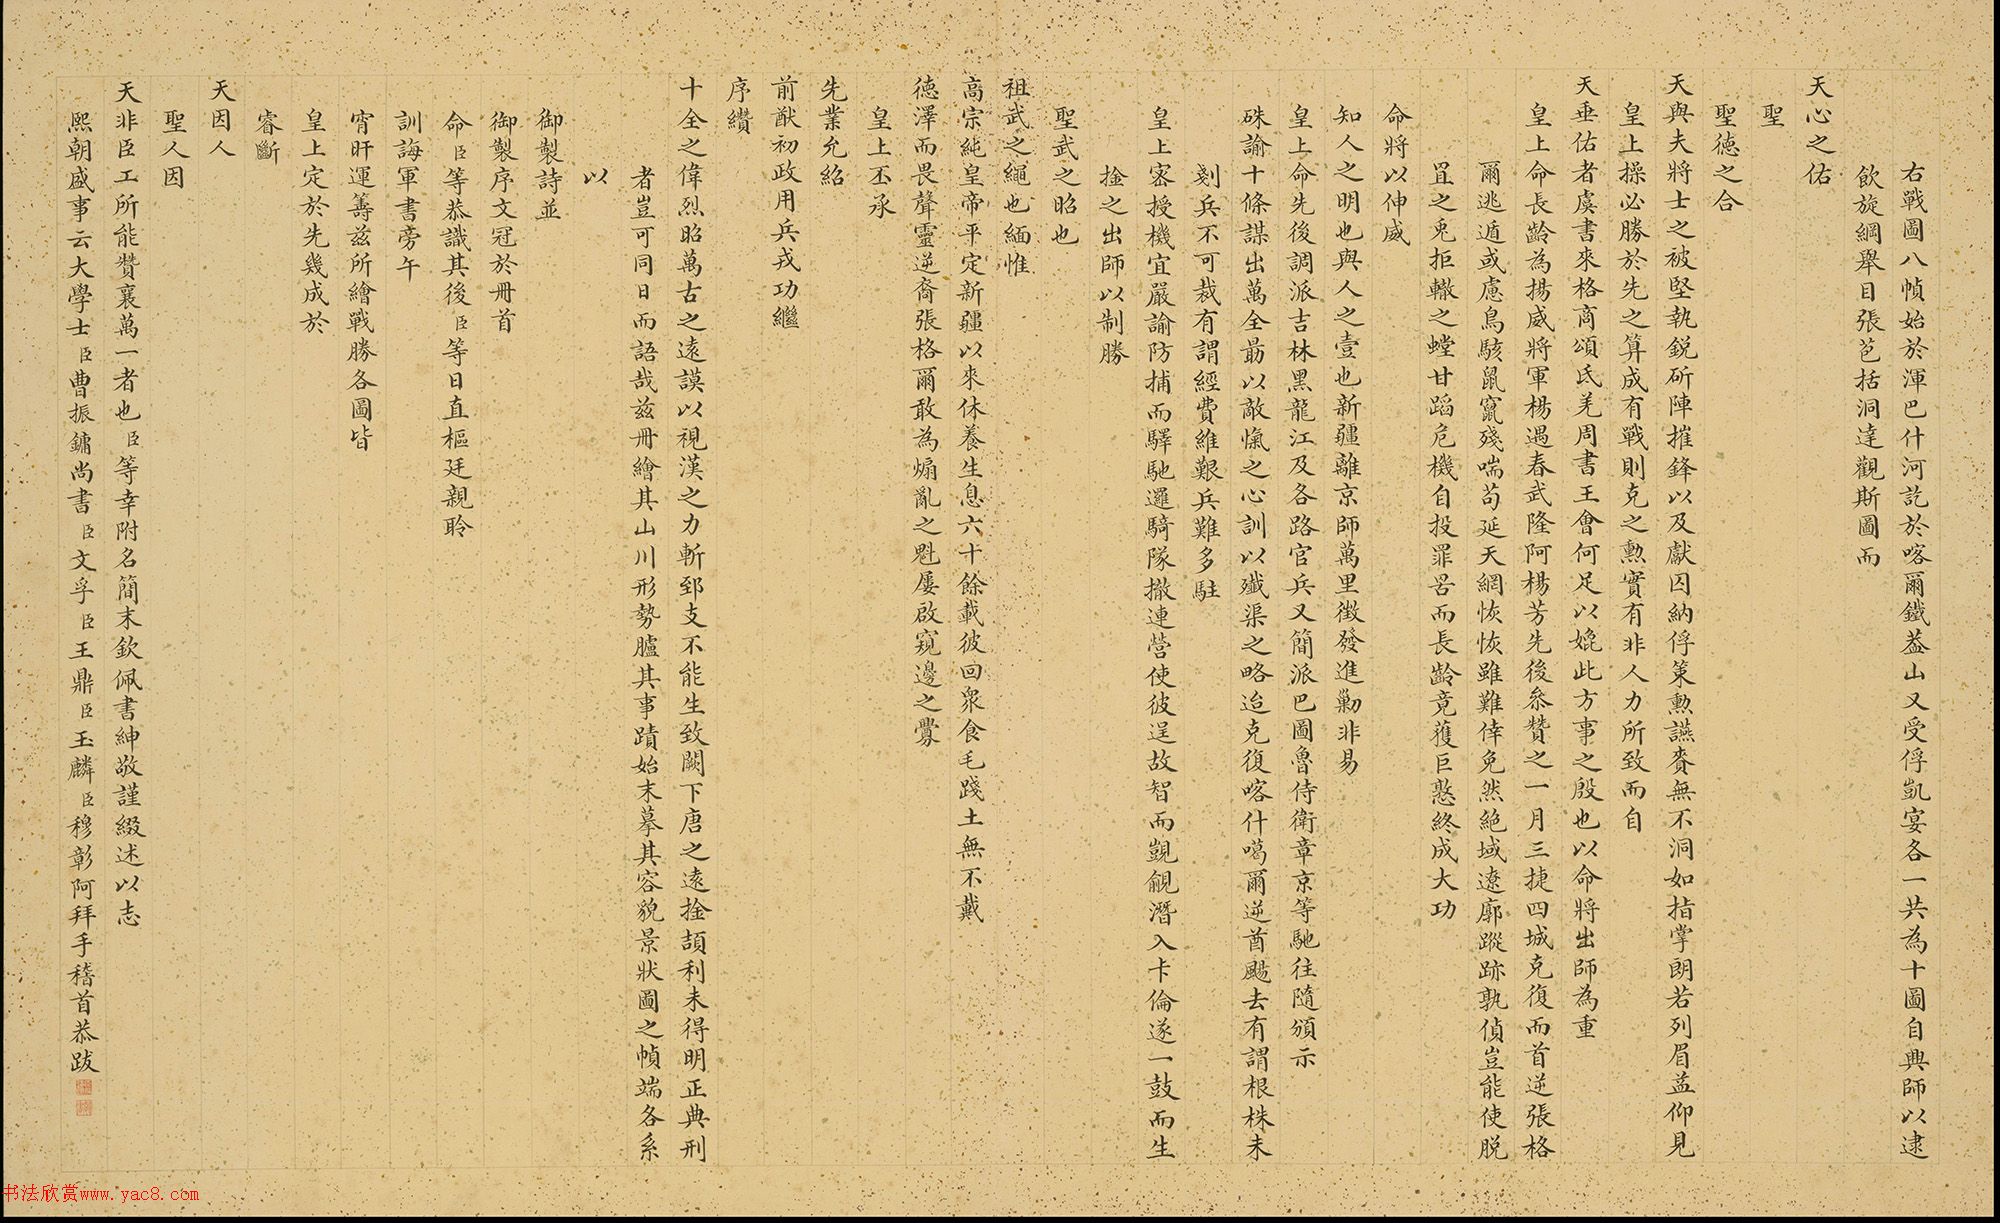 右戰圖八幀始於渾巴什河訖於喀爾鐵葢山又受俘凱宴各一共為十圖自興師以逮
飲旋綱舉目張苞括洞達觀斯圖而
天心之佑
聖
聖德之合
天與夫將士之被堅執鋭斫陣摧鋒以及獻囚納俘策勲讌賚無不洞如指掌朗若列眉葢仰見
皇上操必勝於先之算成有戰則克之勲實有非人力所致而自
天垂佑者虞書來格商頌氐羌周書王會何足以媲此方事之殷也以命將出師為重
皇上命長齡為揚威將軍楊遇春武隆阿楊芳先後叅贊之一月三捷四城克復而首逆張格
爾逃遁或慮鳥駭鼠竄殘喘苟延天網恢恢雖難倖免然絶域遼廓蹤跡孰偵豈能使脱
罝之兎拒轍之螳甘蹈危機自投罪罟而長齡竟獲巨憝終成大功
命將以伸威
知人之明也與人之壹也新疆離京師萬里徵發進勦非易
皇上命先後調派吉林黑龍江及各路官兵又簡派巴圖魯侍衛章京等馳往隨頒示
硃諭十條謀出萬全朂以敵愾之心訓以殲渠之略迨克復喀什噶爾逆酋颺去有謂根株未
剗兵不可裁有謂經費維艱兵難多駐
皇上密授機宜嚴諭防捕而驛馳邏騎隊撤連營使彼逞故智而覬覦潛入卡倫遂一鼓而生
捦之出師以制勝
聖武之昭也
祖武之繩也緬惟
高宗純皇帝平定新疆以來休養生息六十餘載彼回衆食毛踐土無不戴
德澤而畏聲靈逆裔張格爾敢為煽亂之魁屢啟窺邊之釁
皇上丕承
先業允紹
前猷初政用兵戎功繼
序纘
十全之偉烈昭萬古之遠謨以視漢之力斬郅支不能生致闕下唐之遠捦頡利未得明正典刑
者豈可同日而語哉兹冊繪其山川形勢臚其事蹟始末摹其容貌景狀圖之幀端各系
以
御製詩並
御製序文冠於冊首
命臣等恭識其後臣等日直樞廷親聆
訓誨軍書旁午
宵旰運籌兹所繪戰勝各圖皆
皇上定於先幾成於
睿斷
天因人
聖人因
天非臣工所能贊襄萬一者也臣等幸附名簡末欽佩書紳敬謹綴述以志
熙朝盛事云大學士臣曹振鏞尚書臣文孚臣王鼎臣玉麟臣穆彰阿拜手稽首恭跋
书法欣赏www.yac8.com